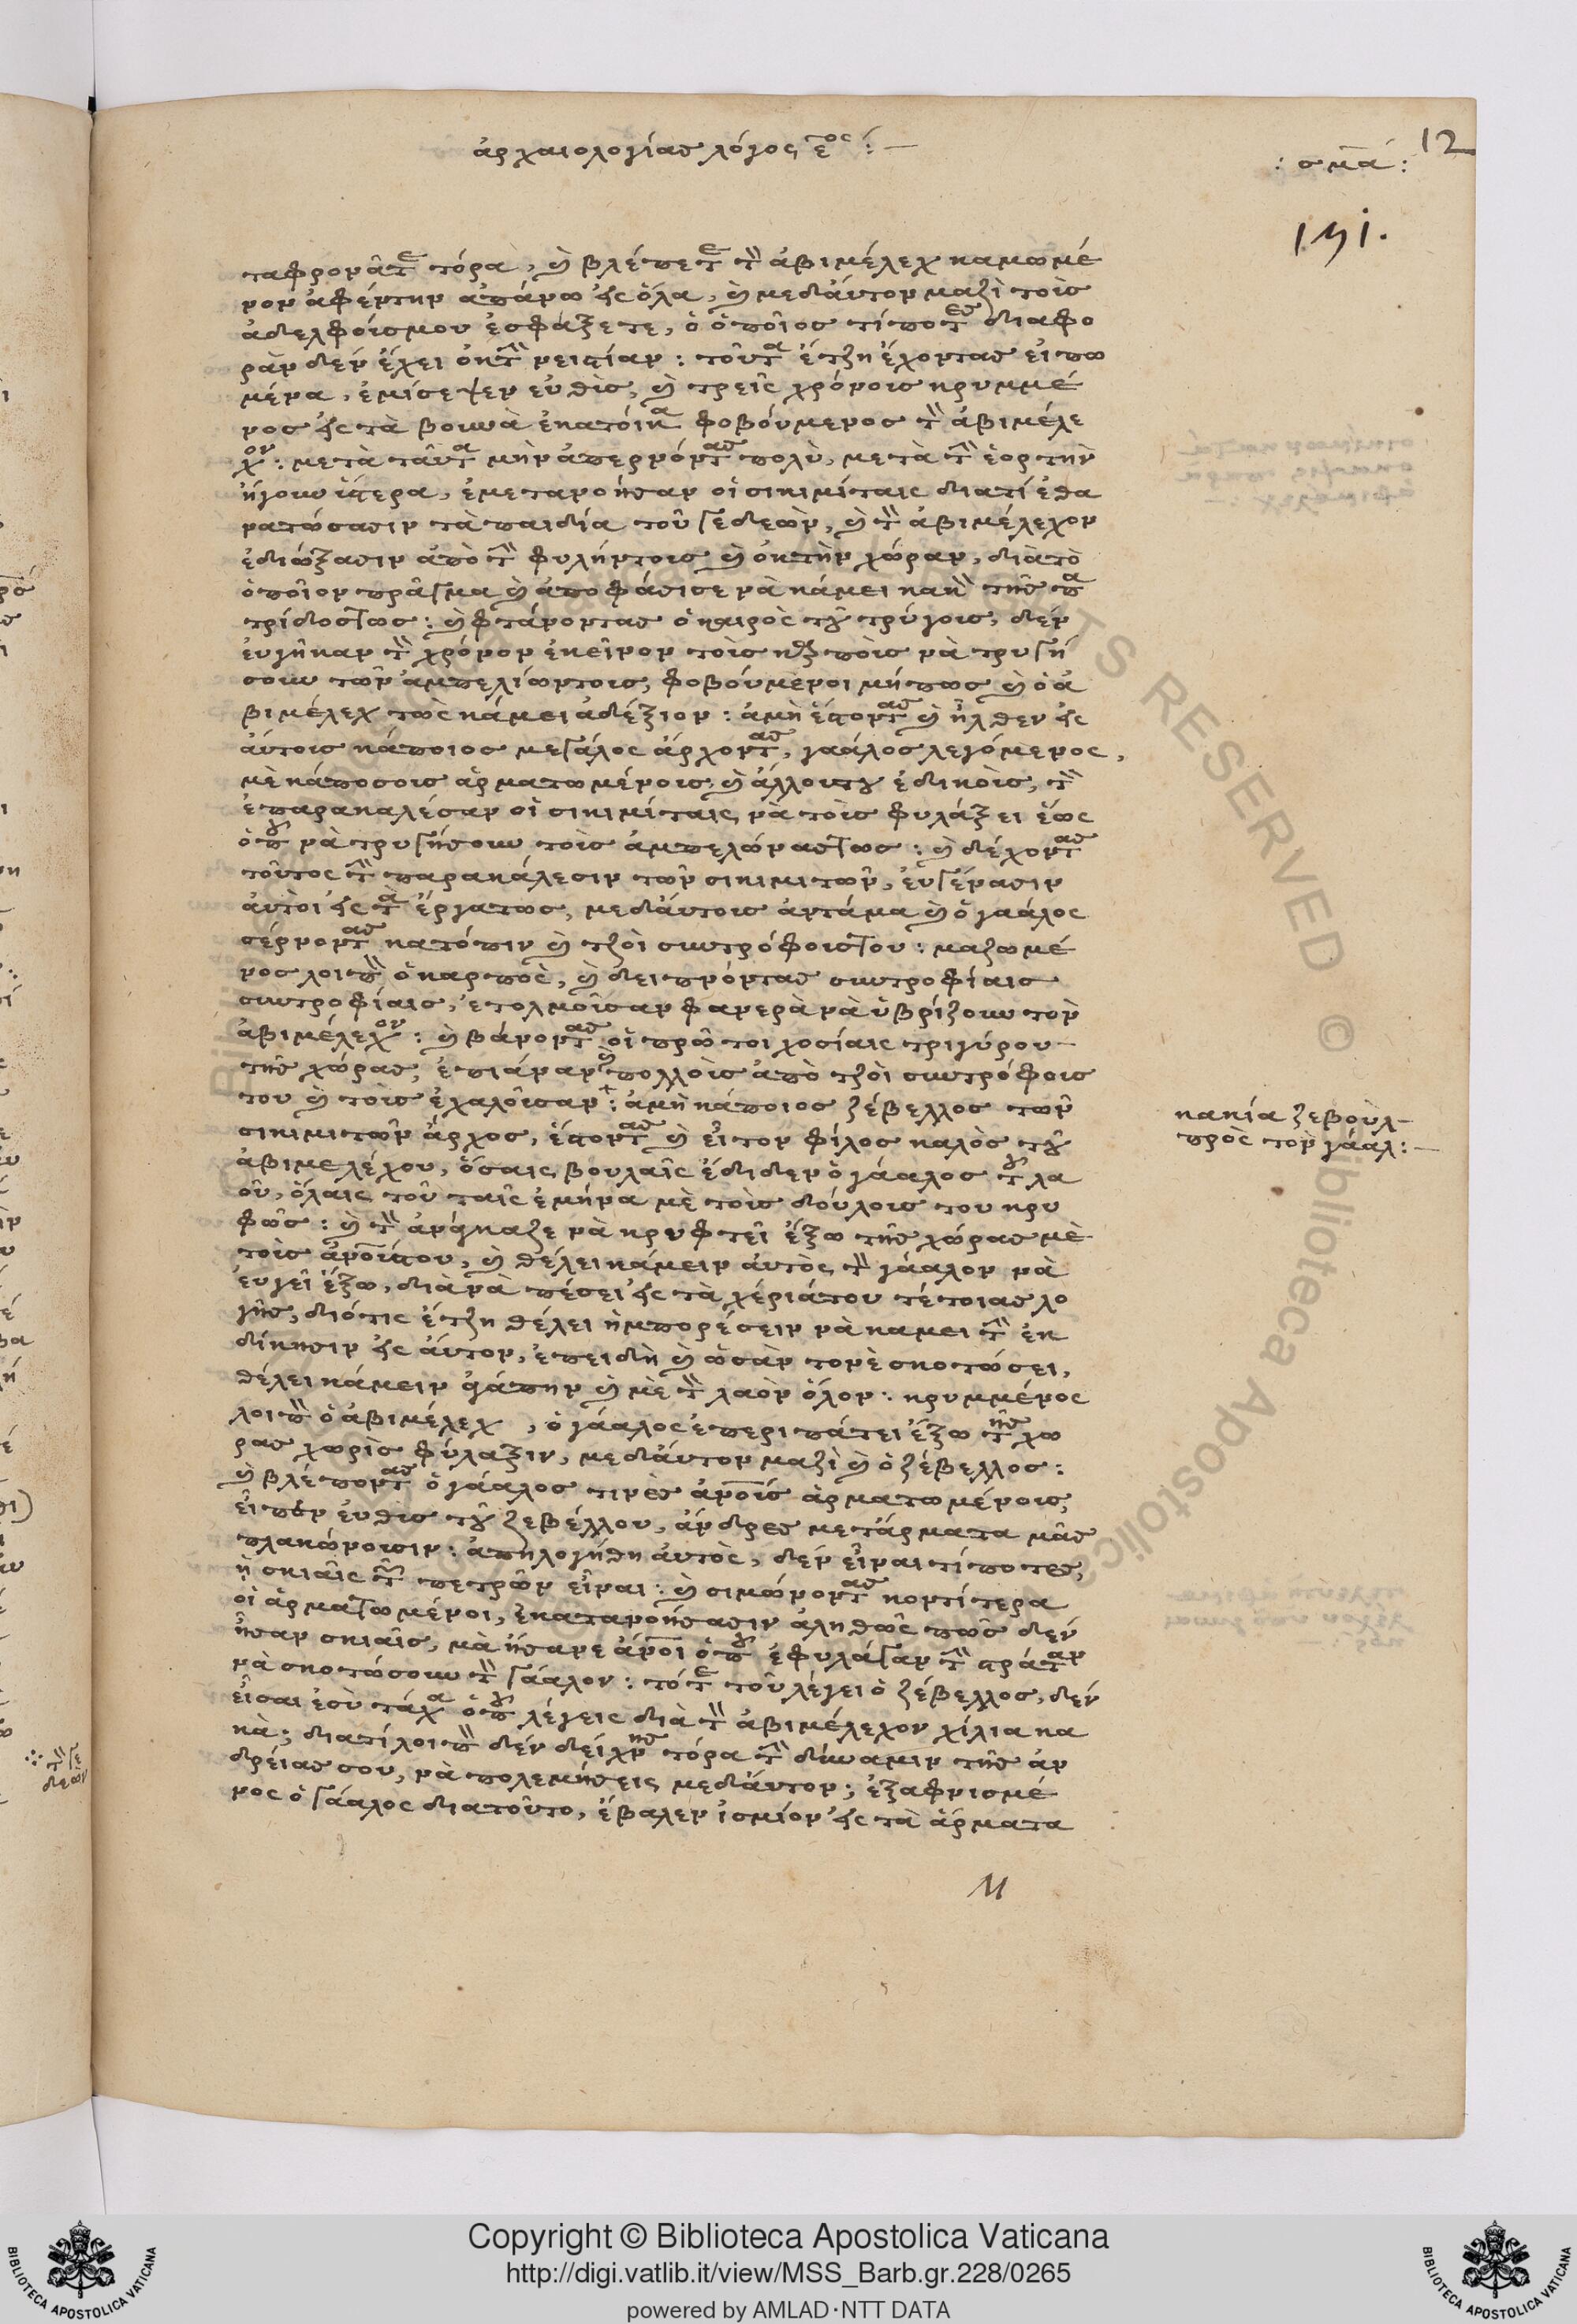 ἀρχαιολογίας λόγος ε^ος :—
: σμα :
12
191.
ταφρονᾶτε τόρα, καὶ βλέπετε τὸν ἀβιμέλεχ καμωμέ
νον ἀφέντην ἀπάνω εἰς ὅλα, καὶ μεδαύτον μαζὶ τοὶς
ἀδελφοίσμου ἐσφάξετε, ὁ ὁποῖος τίποτες διαφο
ρὰν δὲν ἔχει ἐκ τὴν
μένα, ἐμίσεψεν εὐθὶς, καὶ τρεῖς χρόνοις κρυμμέ
νος εἰς τὰ βουνὰ ἐκατόικα φοβούμενος τὸν ἀβιμέλε
χον : μετὰ ταῦτα μὴν ἀπερνόντας πολὺ, μετὰ τὴν ἑορτὴν
ἤγουν ὕστερα, ἐμετανοήσαν οἱ σικιμίταις διατί ἐθα
νατώσασιν τὰ παιδία τοῦ γεδεὼν, καὶ τὸν ἀβιμέλεχον
ἐδιώξασιν ἀπὸ τὴν φυλήντοις καὶ ἐκτὴν χώραν, διὰτὸ
ὁποῖον πρᾶγμα καὶ ἀποφάσισε νὰ κάμει κακὸν τῆς πα
τρίδοςτως : καὶ φτάνοντας ὁ καιρὸς τοῦ τρύγοις, δὲν
ἐυγῆκαν τὸν χρόνον ἐκεῖνον τοὶς κήπὸις νὰ τρυγή
σουν τῶν ἀμπελίωντοις, φοβούμενοι μήπως καὶ ὁ ἀ
βιμέλεχ τῶς κάμει ἀδέξιον : ἀμὴ ἔστοντας καὶ ἦλθεν εἰς
ἀύτοις κάποιος μεγάλος ἄρχοντας, γαάλος λεγόμενος,
μὲ κάποσοις ἁρματωμένοις, καὶ ἄλλουςτου ἐδικοὶς, τὸν
ἐπαρακαλέσαν οἱ σικιμίταις, νὰ τοὶς φυλάξει ἕως
ὁποῦ νὰ τρυγήσουν τοὶς ἀμπελώναςτως : καὶ δέχοντας
τοῦτος τὴν παρακάλεσιν τῶν σικιμιτῶν, ἐυγένασιν
ἀὐτοὶ εἰς τὰ ἔργατως, μεδάυτοις ἀντάμα καὶ ὁ γαάλος
σέρνοντας κατόπιν καὶ τζοὶ συντρόφοιςτου : μαζωμέ
νος λοιπὸν ὁ καρπὸς, καὶ δειπνόντας συντροφίαις
συντροφίαις, ἐτολμοῦσαν φανερὰ νὰ ὑβρίζουν τὸν
ἀβιμέλεχον : καὶ βάνοντας οἱ πρῶτοι χοσίαις τριγύρου
τῆς χώρας, ἐπιάναν καὶ πολλοὶς ἀπὸ τζοὶ συντρόφοις
του καὶ τοὶς ἐχαλοῦσαν : ἀμὴ κάποιος ζέβελλος τῶν
σικιμιτῶν ἄρχος, ἔστοντας καὶ εἶτον φίλος καλὸς τοῦ
ἀβιμελέχου, ὅσαις βουλαῖς ἐδιδεν ὁ γάαλος τοῦ λα
οῦ, ὅλαις τοῦ ταῖς ἐμήνα μὲ τοὶς δούλοις του κρυ
φῶς : καὶ τὸν ἀνάγκαζε νὰ κρυφτεῖ ἔξω τῆς χώρας μὲ
τοὶς ἀνθρώποιςτου, καὶ θέλει κάμειν ἀυτὸς τὸν γάαλον νὰ
ἐυγεῖ ἔξω, διὰ νὰ πέσει εἰς τὰ χέριάτου τέτοιας λο
γῆς, διότις ἔτζη θέλει ἠμπορέσειν νὰ καμει τὴν ἐκ
δίκησιν εἰς ἀύτον, ἐπειδὴ καὶ ὡσὰν τονὲ σκοτώσει,
θέλει κάμειν ἀγάπην καὶ μὲ τὸν λαὸν ὅλον : κρυμμένος
λοιπὸν ὁ ἀβιμέλεχ, ὁ γάαλος ἐπεριπάτει ἔξω τῆς χώ
ρας χωρὶς φύλαξιν, μεδάυτον μαζὶ καὶ ὁ ζέβελλος :
καὶ βλέποντας ὁ γάαλος τινὲς ἀνθρώποις ἁρματωμένοις,
εἶπεν ἐυθὶς τοῦ ζεβέλλου, ἄνδρες μετάρματα μᾶς
πλακώνουσιν : ἀπηλογήθη ἀυτὸς, δὲν εἶναι τίποτες,
ἡ σκιαῖς τῶν πετρῶν εἶναι : καὶ σιμώνοντας κοντίτερα
οἱ ἁρματωμένοι, ἐκατανοήσασιν ἀληθῶς πῶς δὲν
ἦσαν σκιαῖς, μὰ ἤσανε ἄνθρωποι ὁποῦ ἐφυλάγαν τὴν στράταν
νὰ σκοτώσουν τὸν γάαλον : τότε τοῦ λέγει ὁ ζέβελλος, δὲν
εἶσαι ἐσὺ τάχα ὁποῦ λέγεις διὰ τὸν ἀβιμέλεχον χίλια κα
κὰ; διατί λοιπὸν δὲν δείχνης τόρα τὴν δύναμιν τῆς ἀν
δρέιας σου, νὰ πολεμήσεις μεδάυτον; ἐξαφρισμέ
νος ὁ γάαλος διατοῦτο, ἔβαλεν ἰσμίον εἰς τὰ ἅρματα
κακία ζεβοὺλ
πρὸς τὸν γάαλ :—
Copyright © Biblioteca Apostolica Vaticana
http://digi.vatlib.it/view/MSS_Barb.gr.228/0265
powered by AMLAD·NTT DATA
BIBLIOTECA APOSTOLICA VATICANA
BIBLIOTECA APOSTOLICA VATICANA